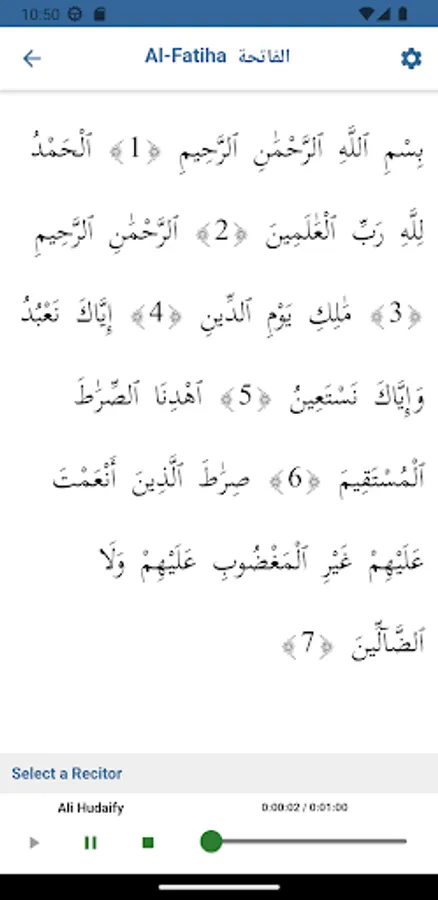 10:50
Al-Fatiha الفاتحة
بِسْمِ ٱللَّهِ ٱلرَّحْمَٰنِ ٱلرَّحِيمِ ﴿1﴾ ٱلْحَمْدُ
لِلَّهِ رَبِّ ٱلْعَٰلَمِينَ ﴿2﴾ ٱلرَّحْمَٰنِ ٱلرَّحِيمِ
﴿3﴾ مَٰلِكِ يَوْمِ ٱلدِّينِ ﴿4﴾ إِيَّاكَ نَعْبُدُ
وَإِيَّاكَ نَسْتَعِينُ ﴿5﴾ ٱهْدِنَا ٱلصِّرَٰطَ
ٱلْمُسْتَقِيمَ ﴿6﴾ صِرَٰطَ ٱلَّذِينَ أَنْعَمْتَ
عَلَيْهِمْ غَيْرِ ٱلْمَغْضُوبِ عَلَيْهِمْ وَلَا
ٱلضَّآلِّينَ ﴿7﴾
Select a Recitor
Ali Hudaify 0:00:02 / 0:01:00